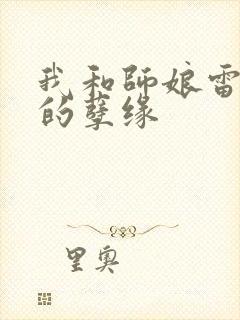 我和师娘雷
的孽缘
里奥